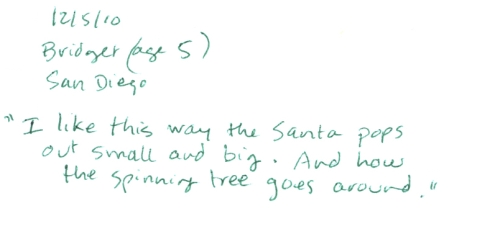 12/5/10
Bridger (age 5)
San Diego
"I like this way the Santa pops
out small and big. And how
the spinning tree goes around."